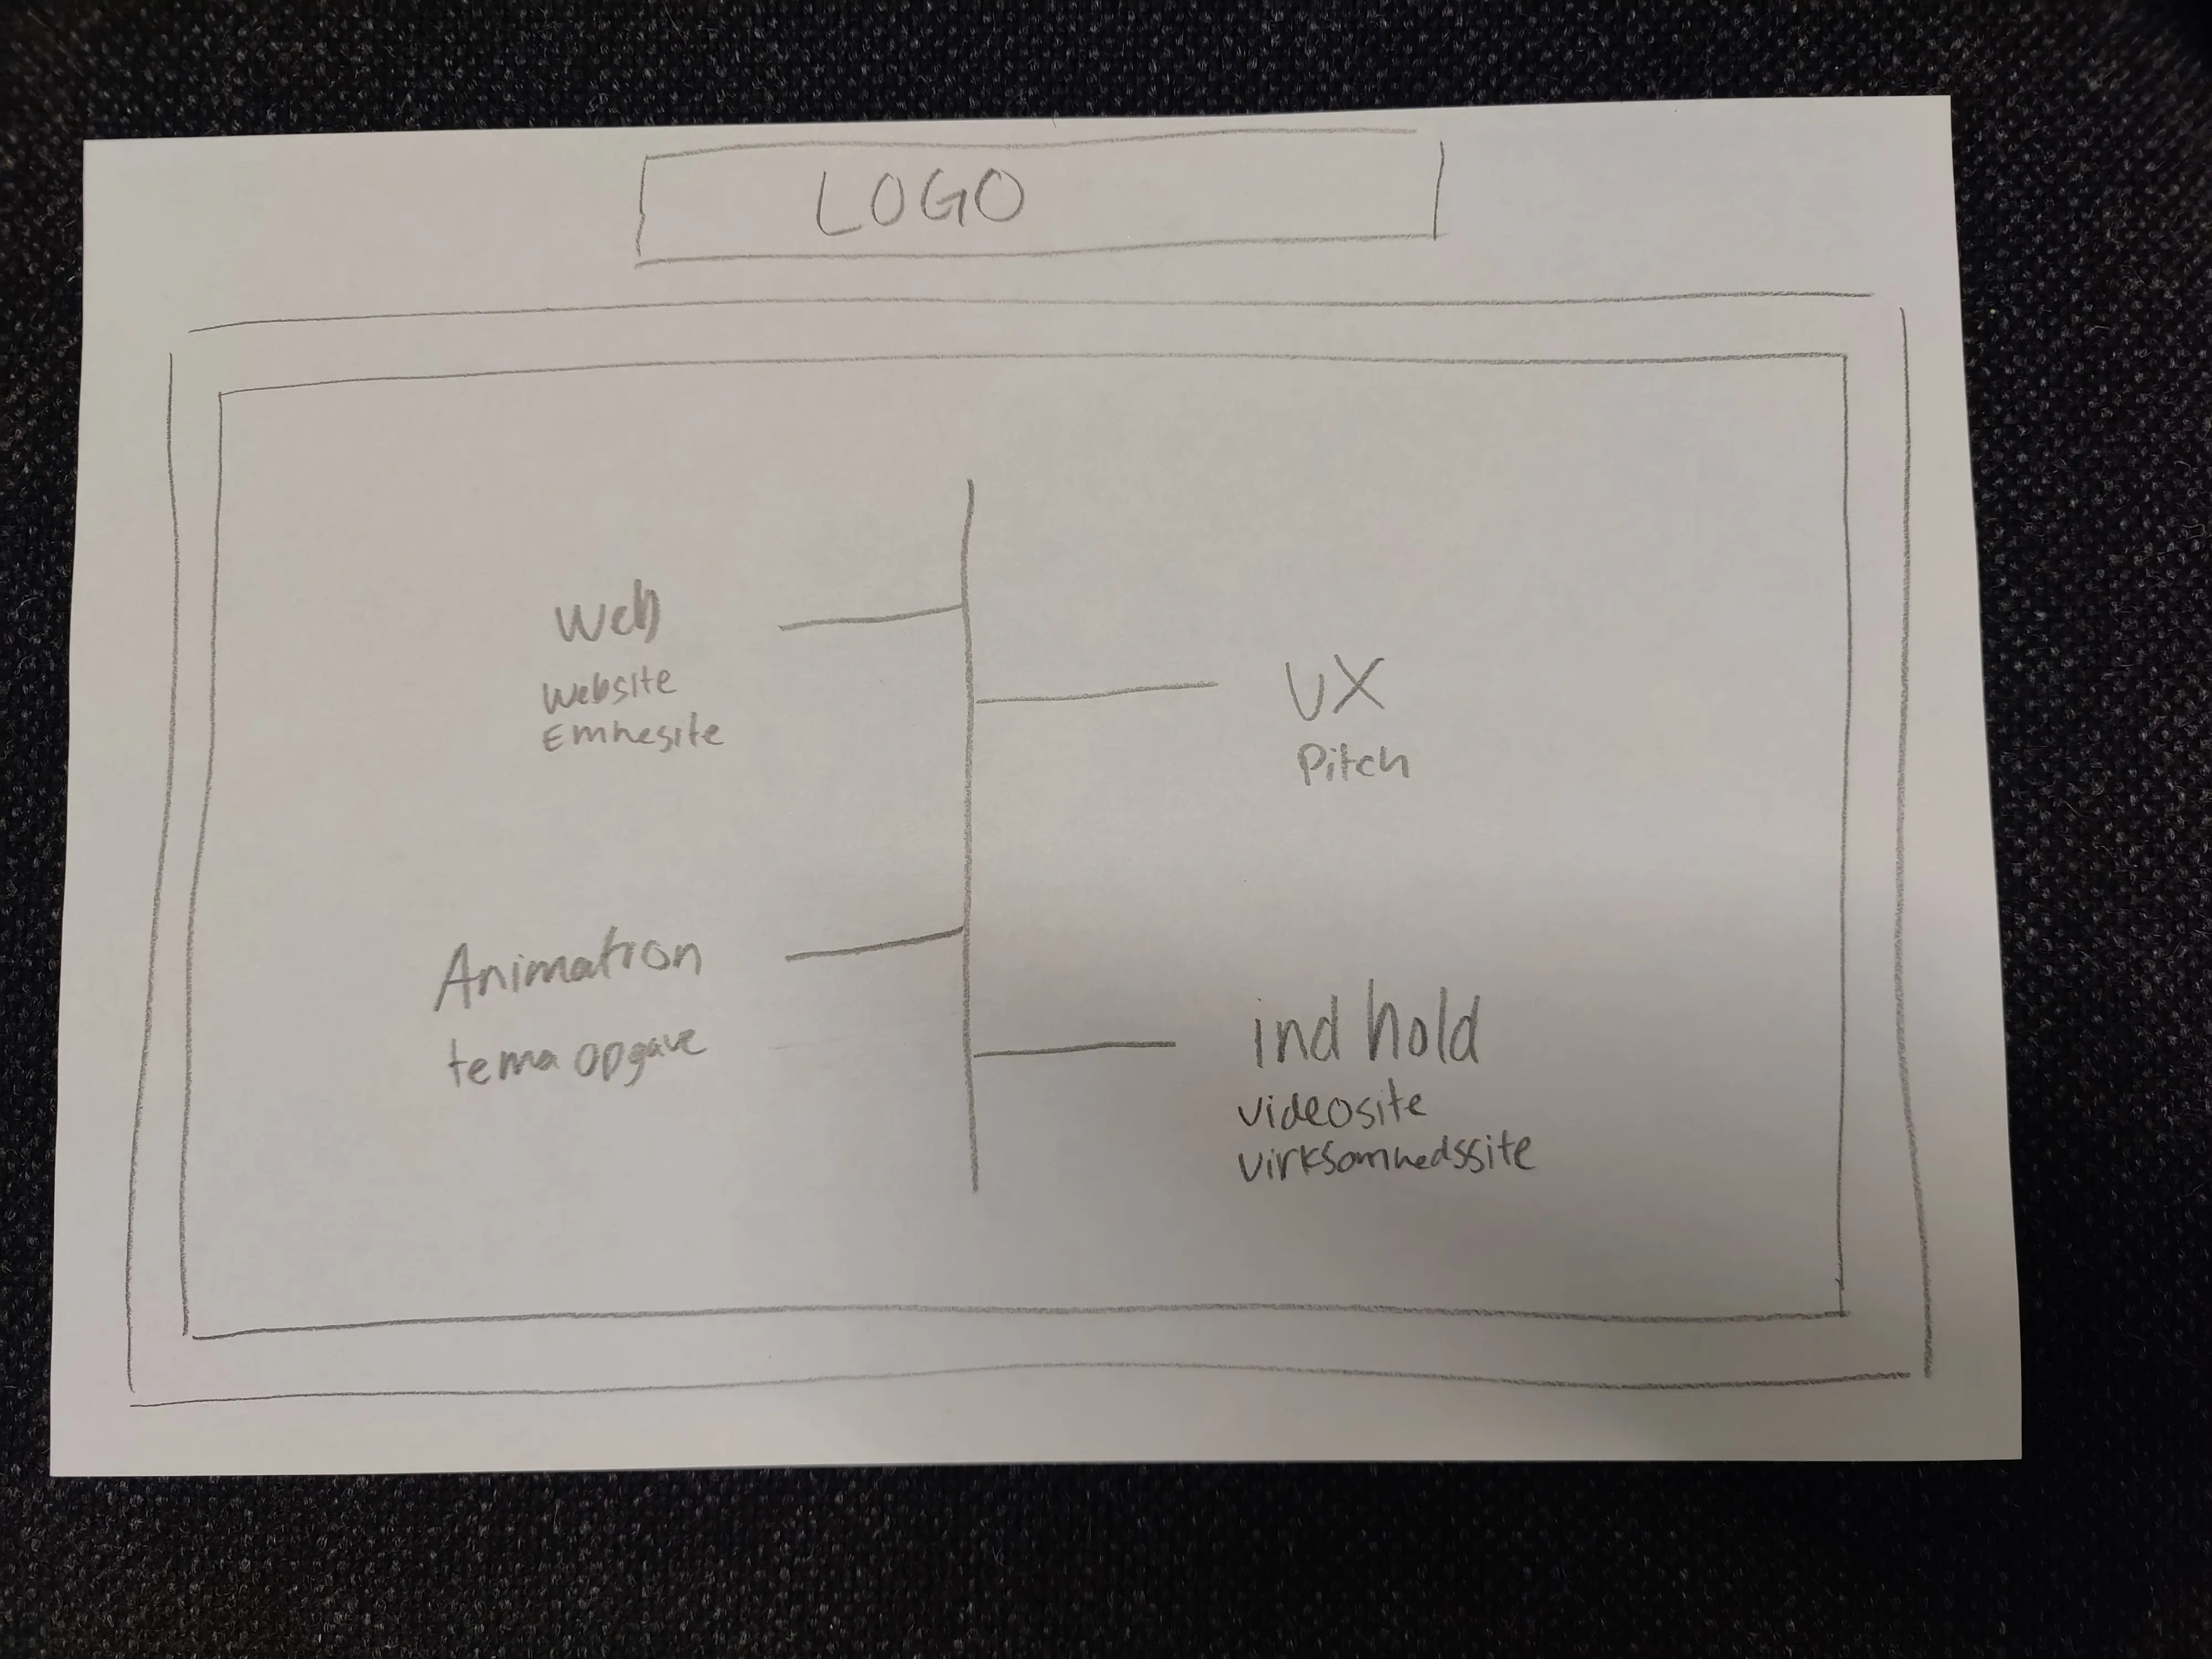 LOGO
Web
Website
Emnesite
UX
Pitch
Animation
tema opgave
ind hold
videosite
virksomhedssite